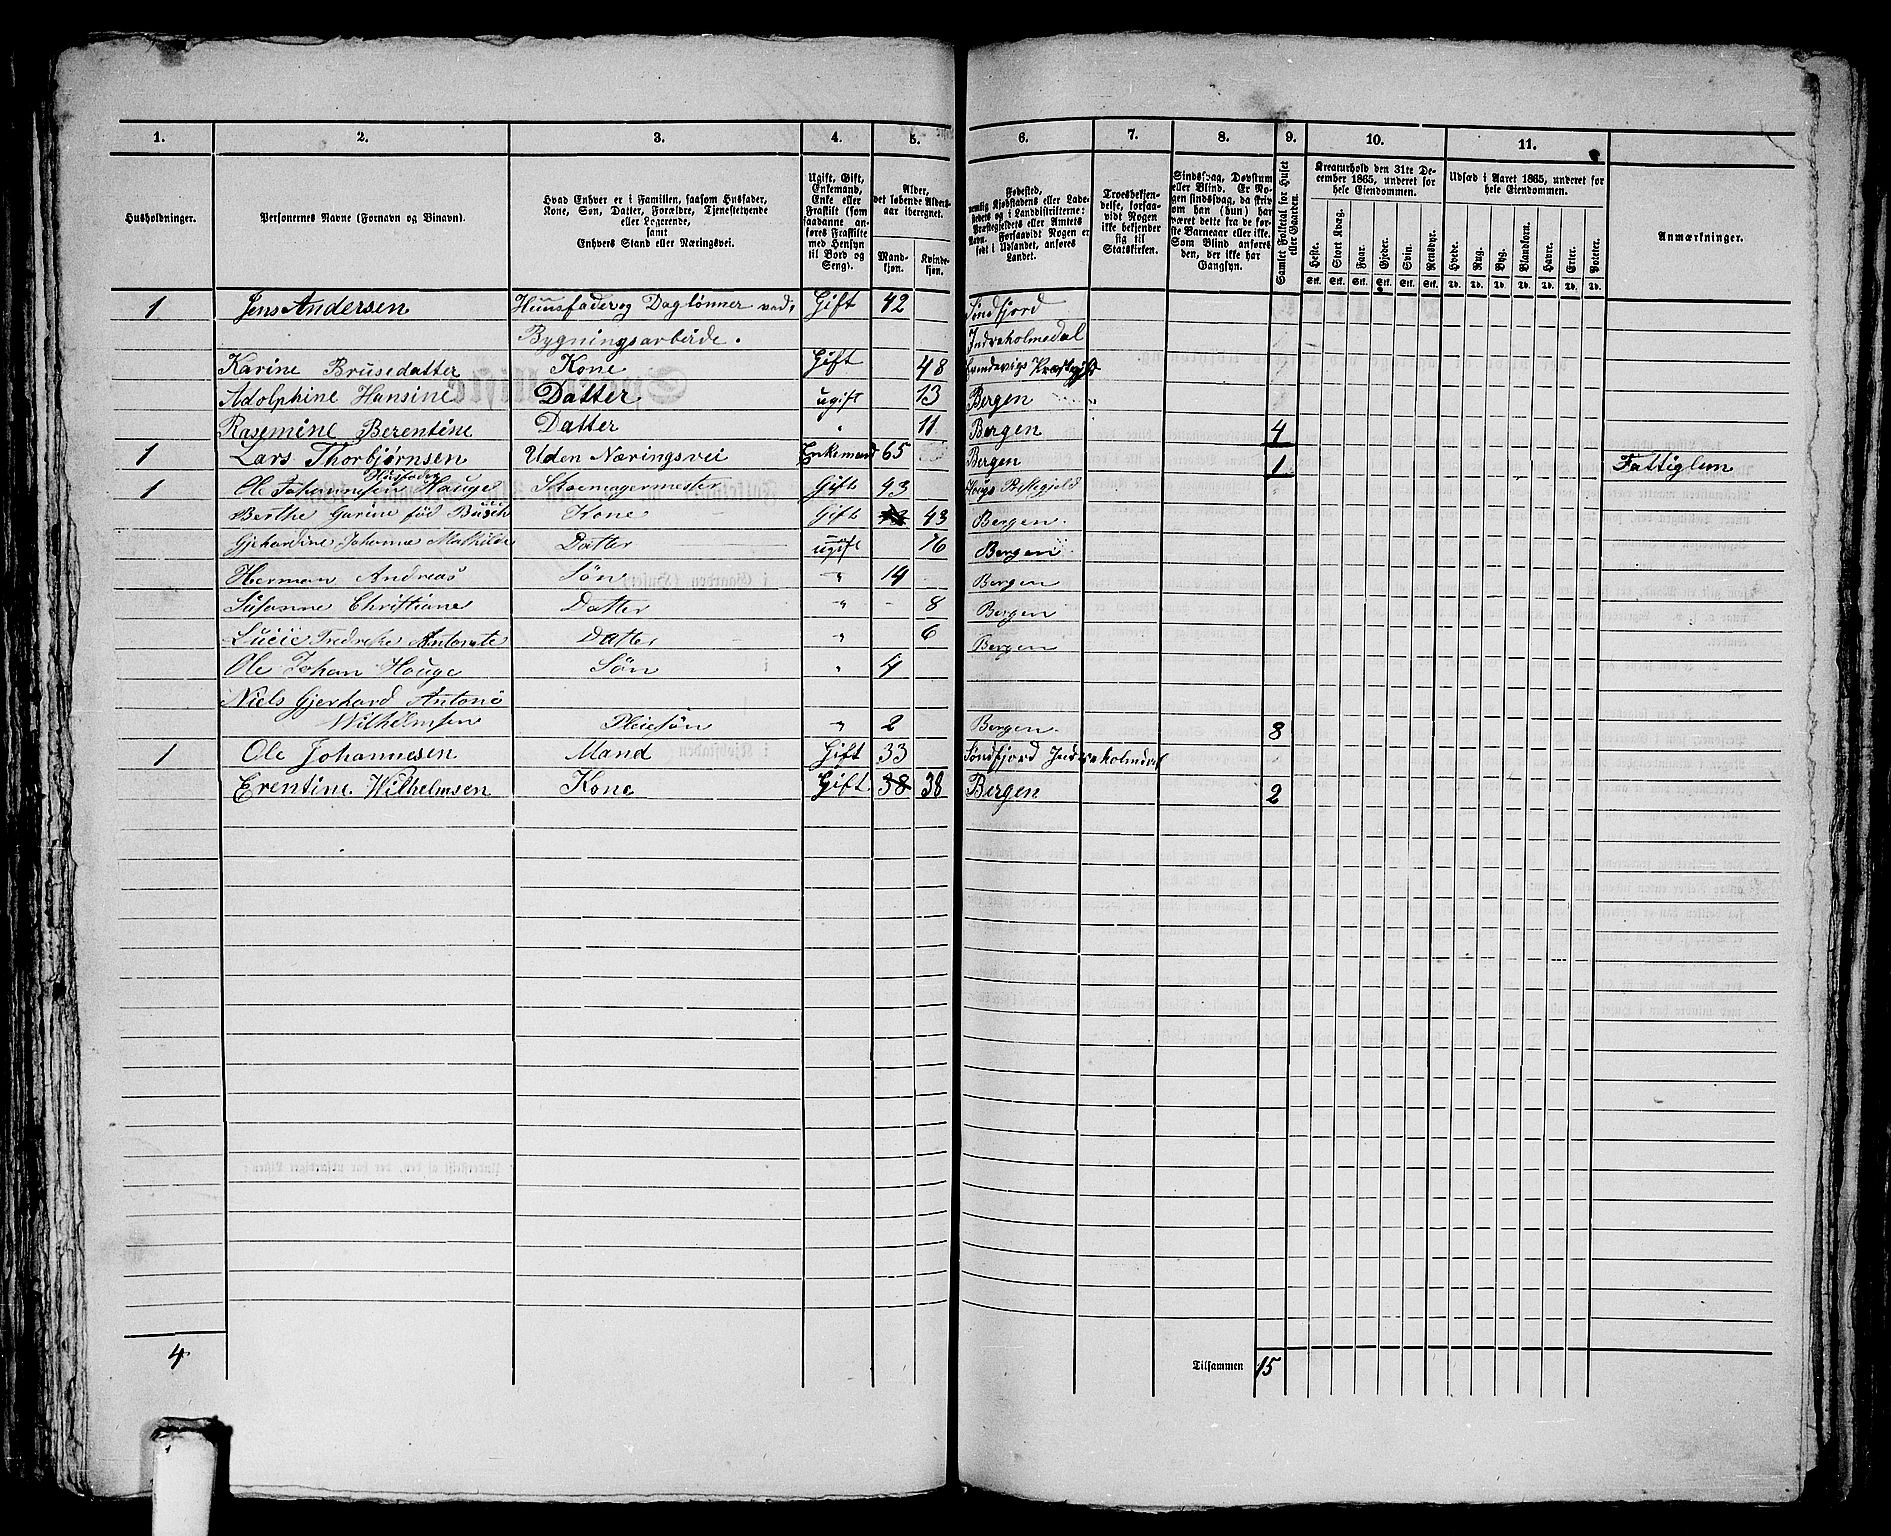 1. 2. 3. 4. 5. 6. 7. 8. 9. 10. 11.
Husholdninger.
Personernes Navne (Fornavn og Binavn).
Hvad Enhver er i Familien, saasom Husfader,
Kone, Søn, Datter, Forældre, Tjenestetyende
eller Logerende,
samt
Enhvers Stand eller Næringsvei.
Ugift, Gift,
Enkemand,
Enke eller
Fraskilte (som
saadanne an-
føres Fraskilte
med Hensyn
til Bord og
Seng).
Alder,
det løbende Alders-
aar iberegnet.
Mand-
kjøn.
Kvinde-
kjøn.
Fødested,
nemlig Kjøbstadens eller Lade-
stedets og i Landdistrikterne:
Præstegjeldets eller Amtets
Navn. Forsaavidt Nogen er
født i Udlandet, anføres
Landet.
Troesbekjen-
delse, forsaa-
vidt Nogen
ikke bekjender
sig til
Statskirken.
Sindssvag, Døvstum
eller Blind. Er No-
gen sindssvag, da skriv
om han (hun) har
været dette fra de før-
ste Barneaar eller ikke.
Som Blind anføres
den, der ikke har
Gangsyn.
Samlet Folketal for Huset
eller Gaarden.
Kreaturhold den 31te De-
cember 1865, underet for
hele Eiendommen.
Heste. Stort Kvæg. Faar. Gjeder. Svin. Rensdyr.
Stk. Stk. Stk. Stk. Stk. Stk.
Udsæd i Aaret 1865, underet for
hele Eiendommen.
Hvede. Rug. Byg. Blandkorn. Havre. Erter. Poteter.
Td. Td. Td. Td. Td. Td. Td.
Anmærkninger.
1 Jens Andersen Huusfader og Daglønner ved Gift 42 Søndfjord
Bygningsarbeide. Indreholmedal
Karine Brusedatter Kone Gift 48 Evindevigs Præstgjld
Adolphine Hansine Datter ugift 13 Bergen
Rasemine Berentine Datter " 11 Bergen 4
1 Lars Thorbjørnsen Uden Næringsvei Enkemand 65 Bergen 1 Fattiglem
Husfader
1 Ole Johannessen Hauge Skoemagermester Gift 43 Hougs Prstegjeld
Berthe Gurine fød Büsch Kone Gift 43 Bergen
Gjehardine Johanne Mathilde Datter ugift 16 Bergen
Herman Andreas Søn " 14 Bergen
Susanne Christiane Datter " 8 Bergen
Lucie Fredrike Antonete Datter " 6 Bergen
Ole Johan Houge Søn " 4
Niels Gjerhard Antoni
Wilhelmsen Pleiesøn " 2 Bergen 8
1 Ole Johannesen Mand Gift 33 Søndfjord Indreholmedal
Erentine Wilhelmsen Kone Gift 38 38 Bergen 2
4 Tilsammen 15